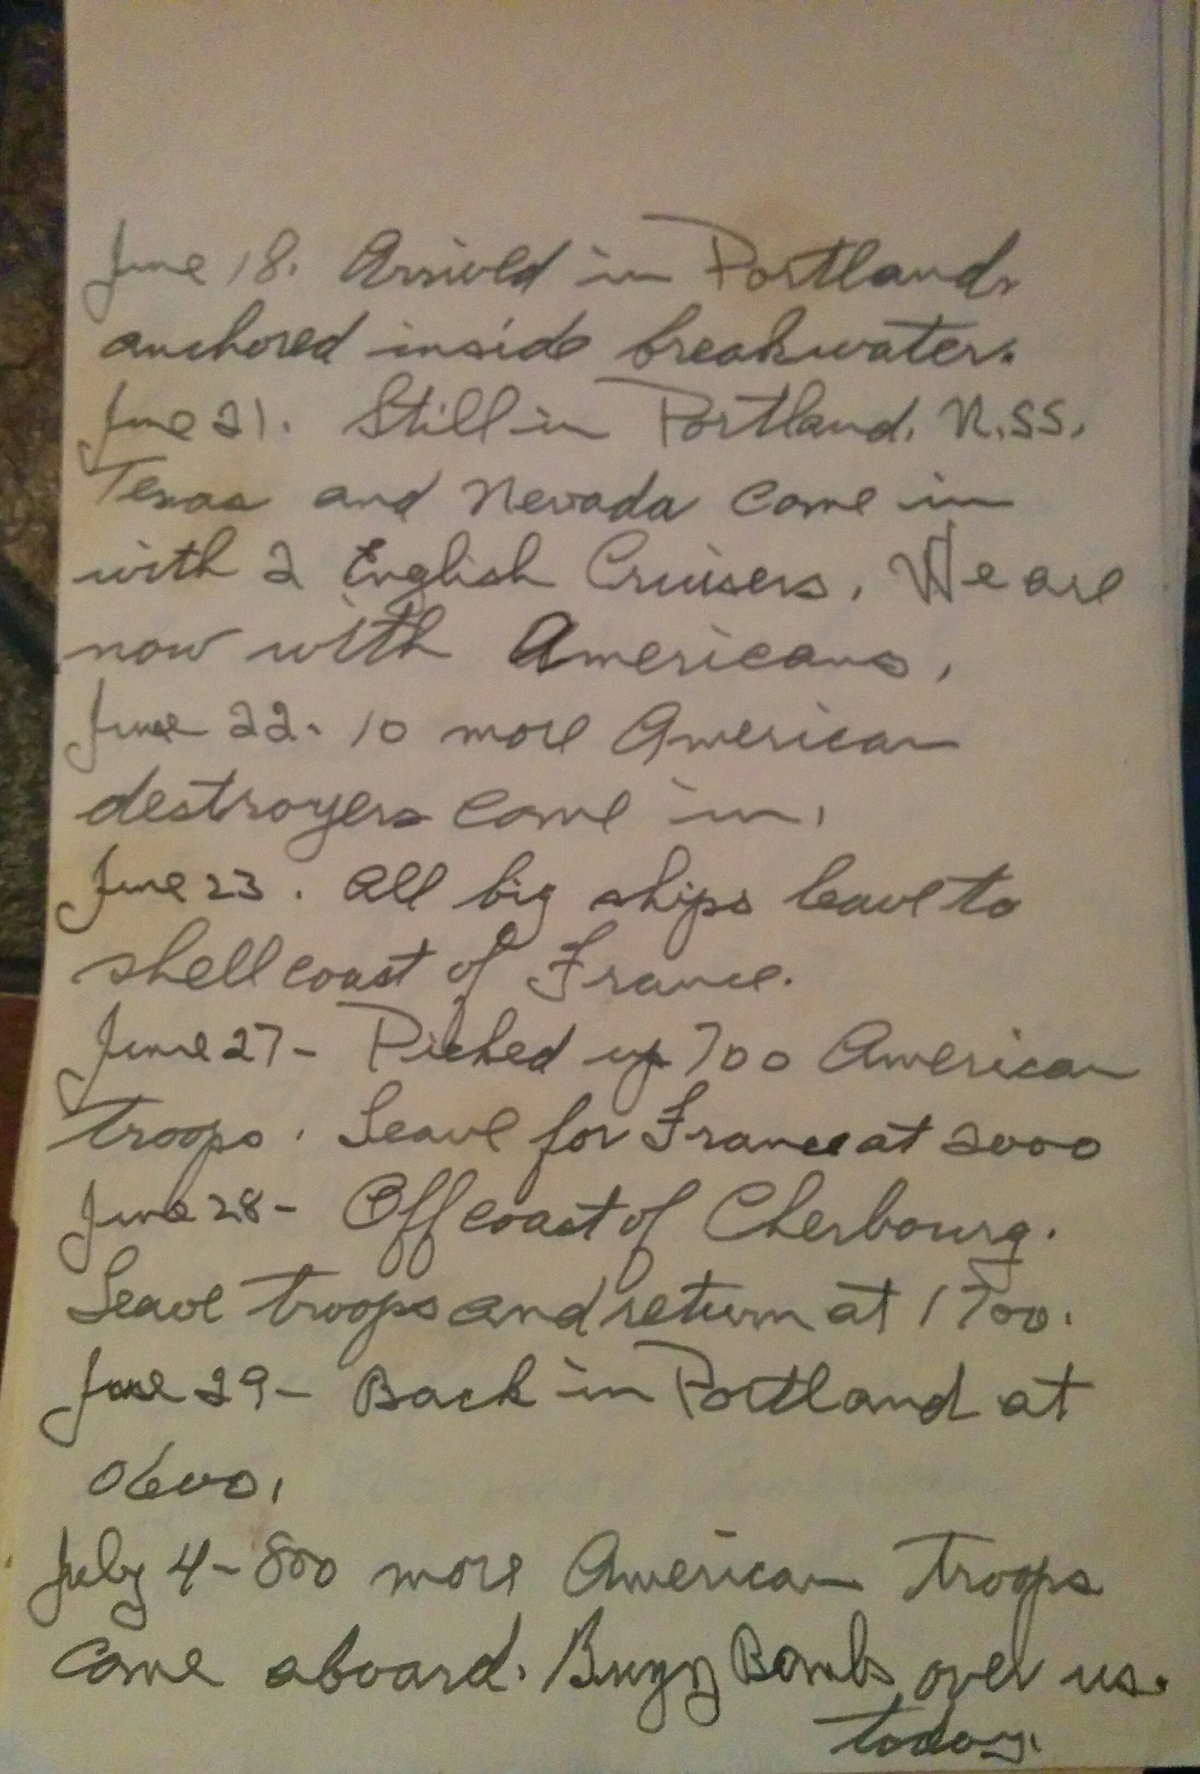 June 18. Arrived in Portland.
anchored inside breakwater.
June 21. Still in Portland. U.S.S.
Texas and Nevada come in
with 2 English Cruisers. We are
now with Americans.
June 22. 10 more American
destroyers come in.
June 23. All big ships leave to
shell coast of France.
June 27- Picked up 700 American
troops. Leave for France at 2000
June 28- Off coast of Cherbourg.
Leave troops and return at 1700.
June 29- Back in Portland at
0600.
July 4- 800 more American troops
come aboard. Buzz Bombs over us
today.